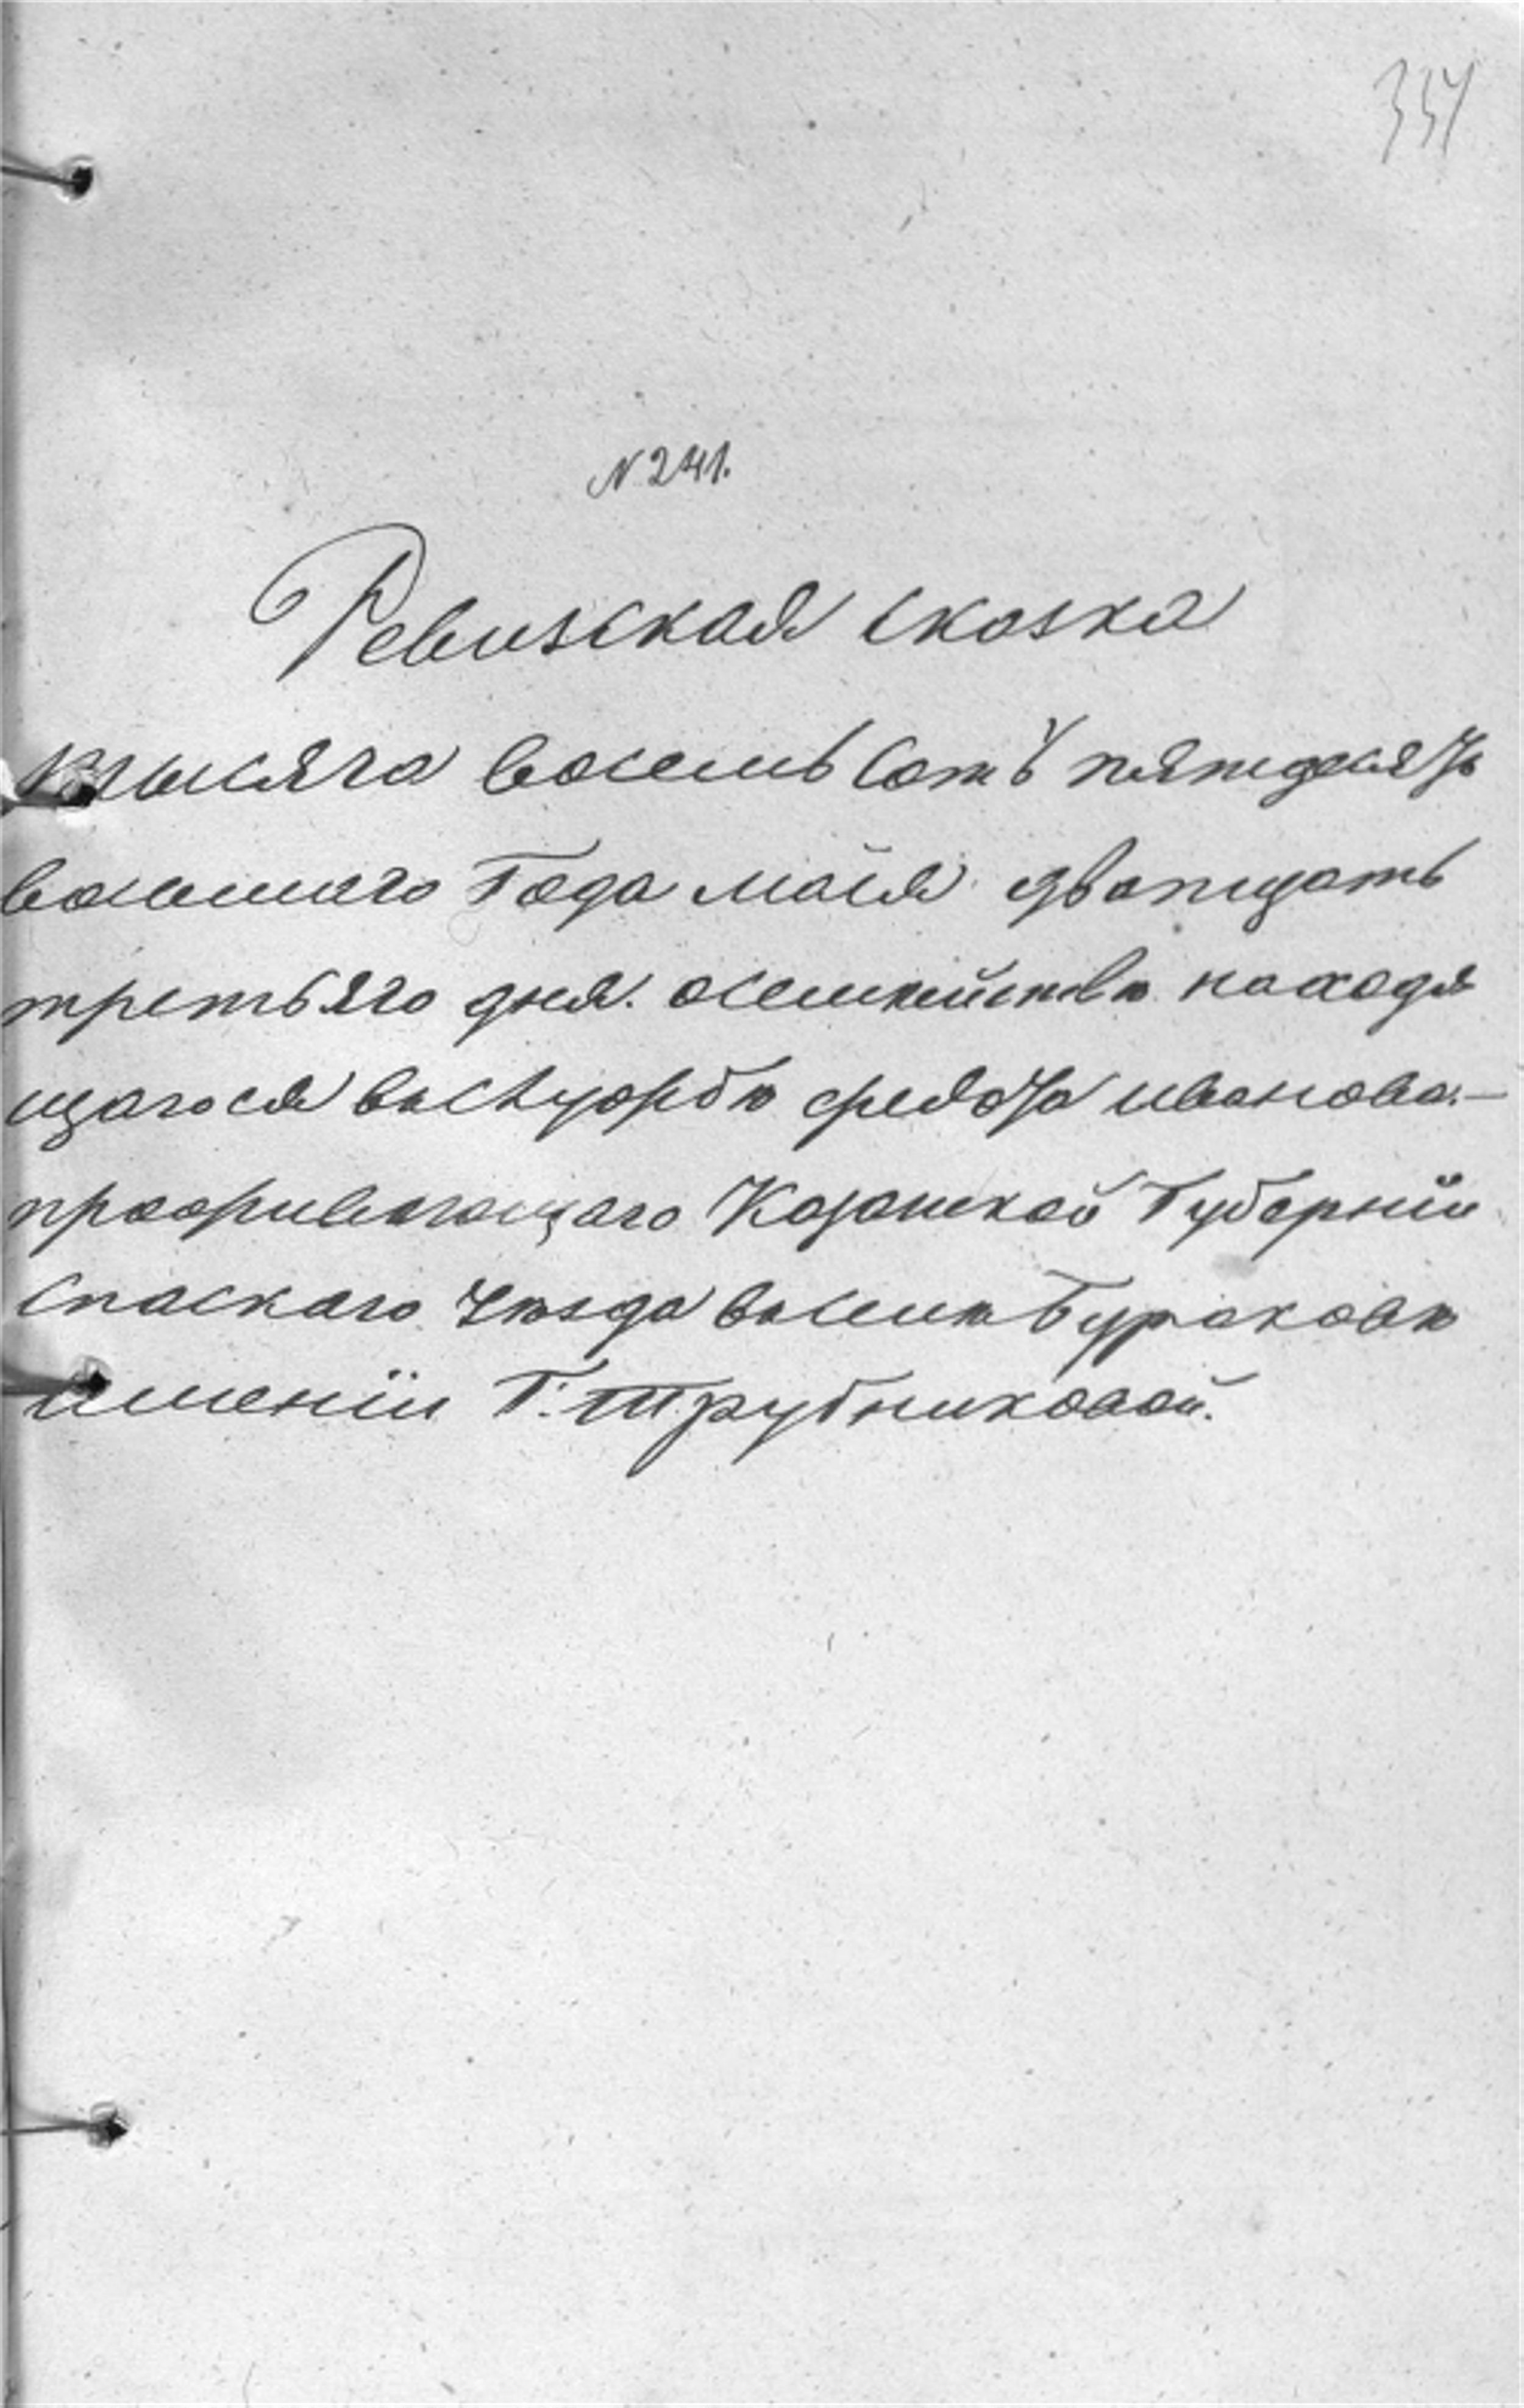 354
N 241.
Ревизская сказка
тысяча восемь сотъ пятдесятъ
восьмаго Года маія двапцать
третьяго дня. осемѣйствѣ находя
щагося вслужбѣ федота иванова.—
проживающаго Казанской Губерніи
спаскаго уѣзда вселѣ Бураковѣ
имѣніи Г: Трубниковой.